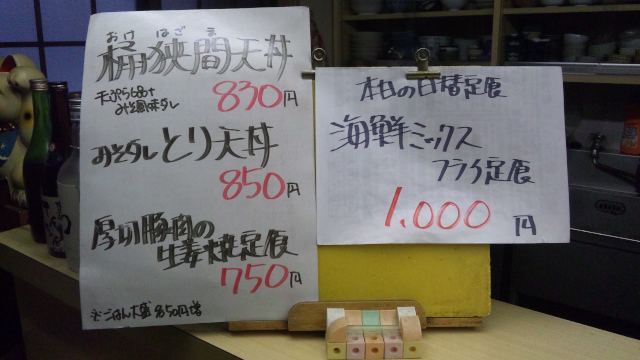 おけ はざま
桶狭間天丼
みそ風味タレ
830円
みそタレとり天丼
850円
厚切豚肉の
生姜焼定食
750円
※ごはん大盛 50円増
本日の日替定食
海鮮ミックス
フライ定食
1,000円